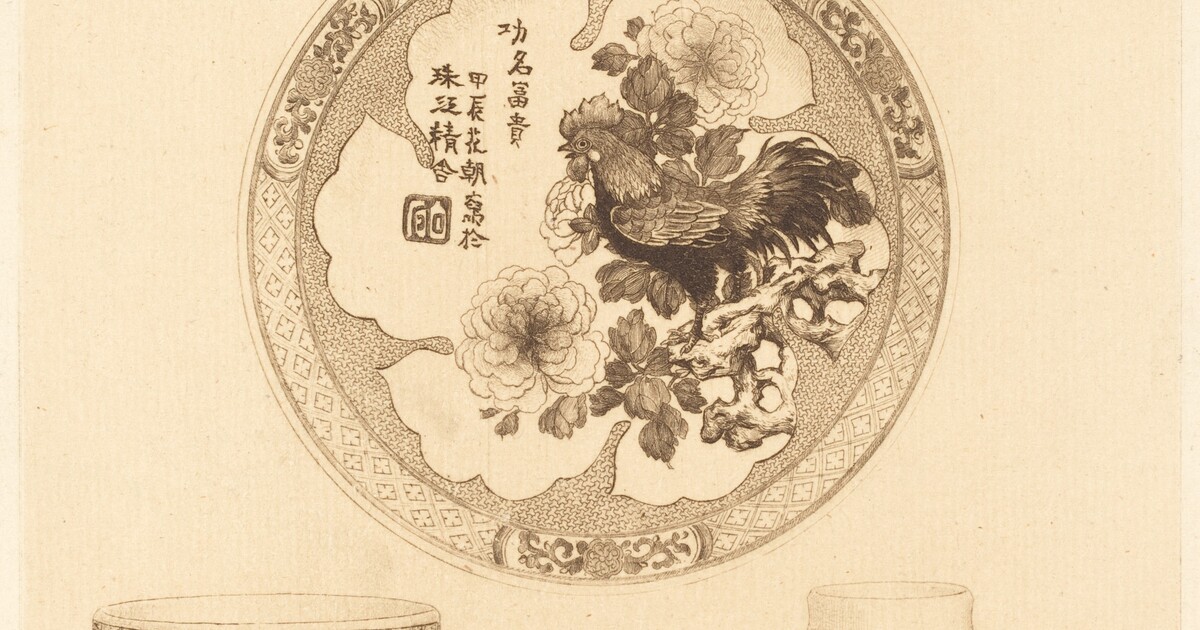 功名富貴
甲辰花朝寫於
珠江精舍